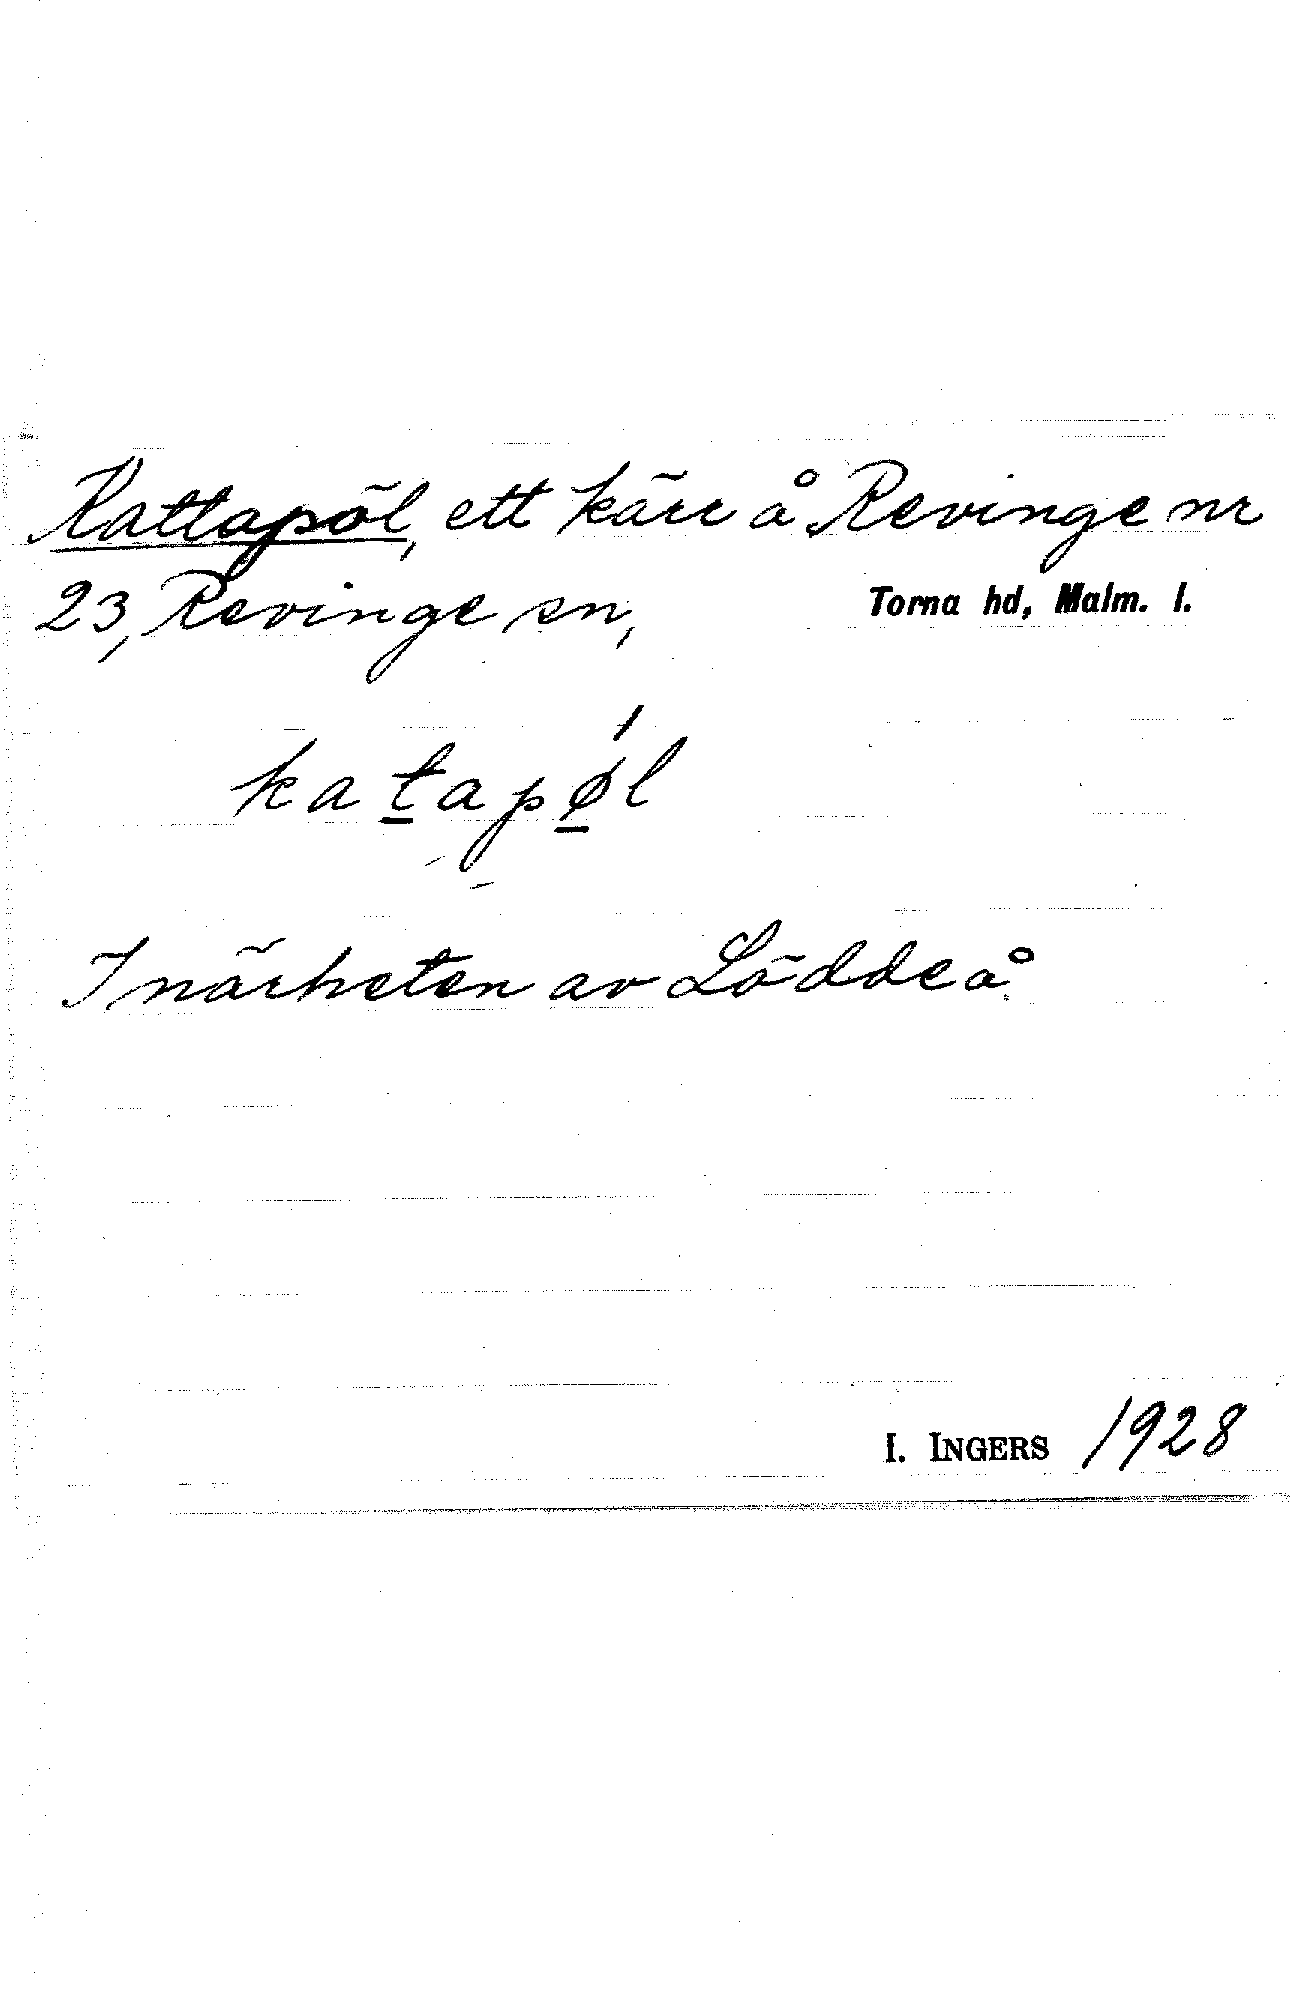 Kattapöl, ett kärr å Revinge nr
23, Revinge sn, Torna hd, Malm. l.
katapøĺ
I närheten av Löddeå
I. INGERS 1928